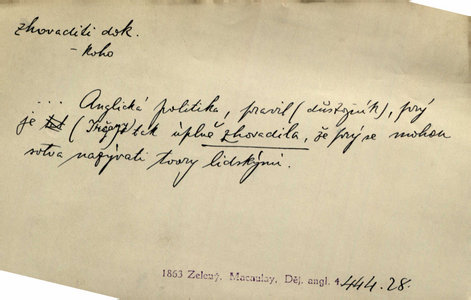 zhovaditi dok.
- koho
... Anglická politika, pravil (důstojník), prý
je (Irčany) tak úplně zhovadila, že prý se mohou
sotva nazývati tvory lidskými.
1863 Zelený, Macaulay, Děj. angl. 4. 444.28.